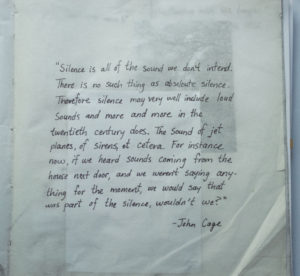 "Silence is all of the sound we don't intend.
There is no such thing as absolute silence.
Therefore silence may very well include loud
sounds and more and more in the
twentieth century does. The sound of jet
planes, of sirens, et cetera. For instance
now, if we heard sounds coming from the
house next door, and we weren't saying any-
thing for the moment, we would say that
was part of the silence, wouldn't we?"
-John Cage